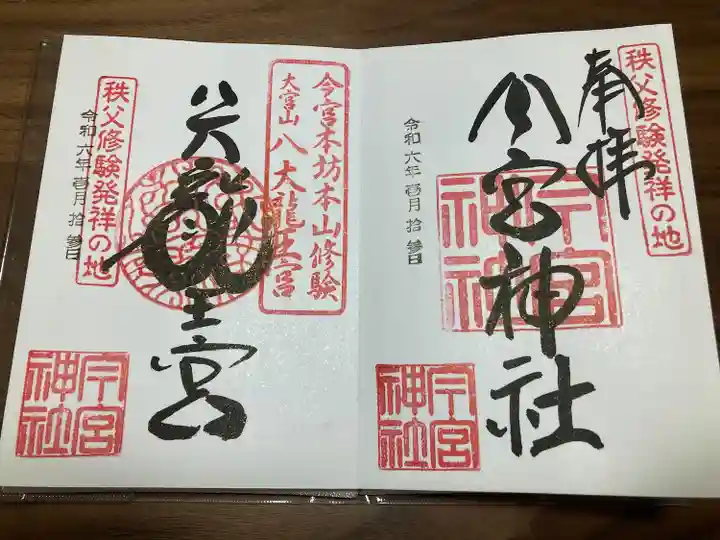 秩父修験発祥の地
奉拝
今宮神社
令和六年壱月拾参日
今宮神社
今宮神社
今宮本坊本山修験
大宮山 八大龍王宮
八大龍王宮
秩父修験発祥の地
令和六年壱月拾参日
今宮神社